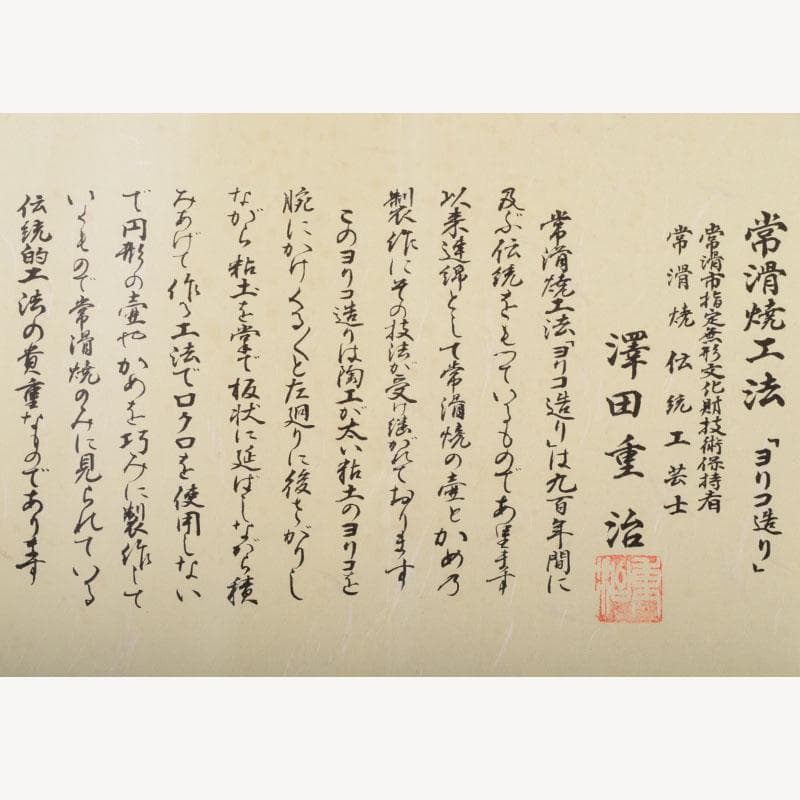 常滑焼工法「ヨリコ造り」
常滑市指定無形文化財技術保持者
常滑焼伝統工芸士
澤田重治
常滑焼工法「ヨリコ造り」は九百年間に
及ぶ伝統をもっているものであります
以来連綿として常滑焼の壷とかめの
製作にその技法が受け継がれております
このヨリコ造りは陶工が太い粘土のヨリコを
腕にかけくるくると左廻りに後ずさりし
ながら粘土を掌で板状に延ばしながら積
みあげて作る工法でロクロを使用しない
で円形の壷やかめを巧みに製作して
いるもので常滑焼のみに見られている
伝統的工法の貴重なものであります
重治